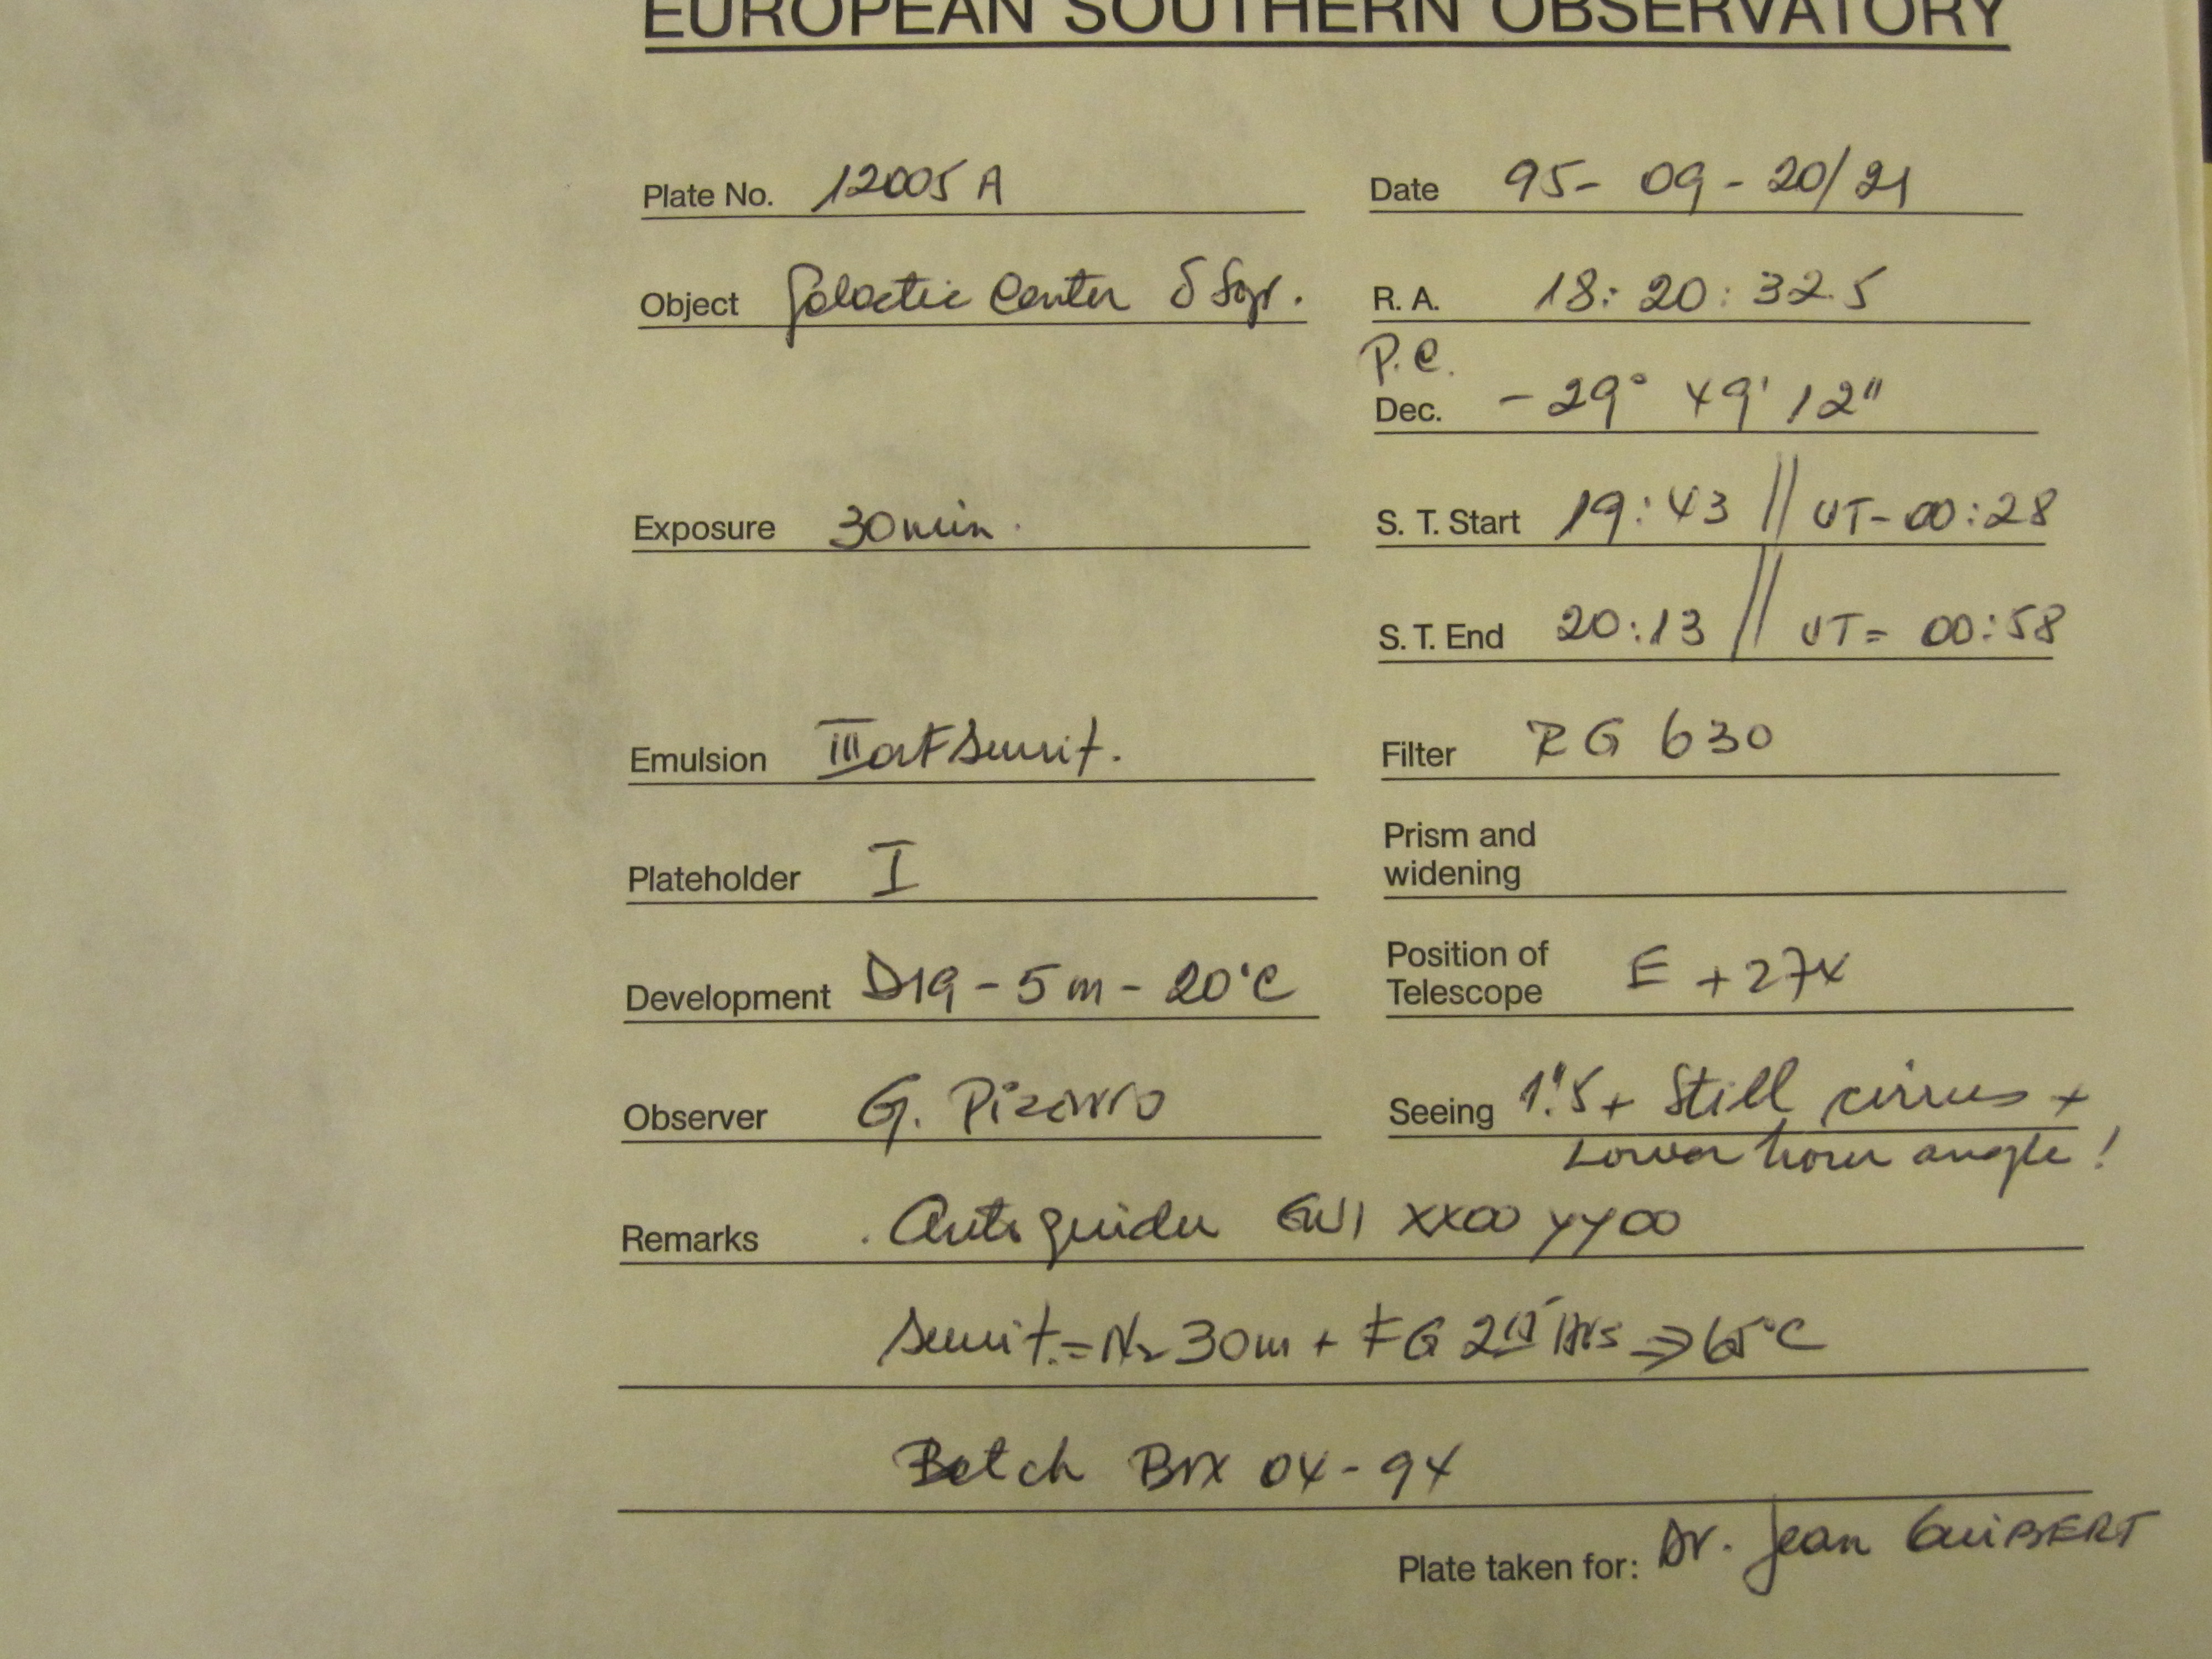 EUROPEAN SOUTHERN OBSERVATORY
Plate No. 12005 A
Date 95- 09 - 20/21
Object Galactic Center δ Sgr.
R. A. 18: 20: 32.5
P.C.
Dec. - 29° 49' 12"
Exposure 30 min.
S. T. Start 19:43 // UT- 00:28
S. T. End 20:13 // UT= 00:58
Emulsion III aF sensit.
Filter RG 630
Plateholder I
Prism and
widening
Development D19 - 5 m - 20°C
Position of
Telescope E + 274
Observer G. Pizarro
Seeing 1".5 + Still cirrus +
Lower hour angle!
Remarks . Autoguider GW1 XX00 YY00
sensit.= N2 30m + FG 2 Hrs ⇒ 65°C
Batch Box 04-94
Plate taken for: Dr. Jean GUIBERT